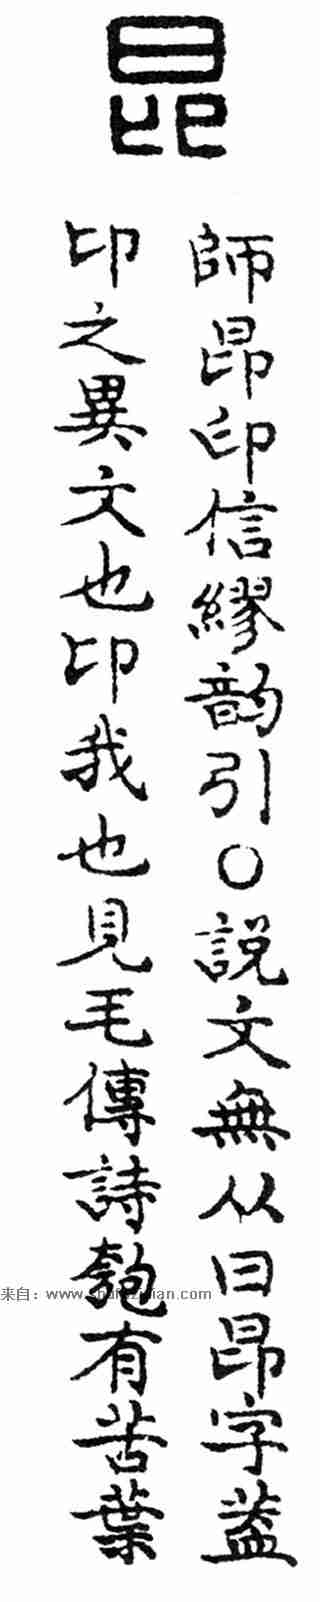 昂
師昂印信繆韵引○說文無从曰昂字葢
卬之異文也卬我也見毛傳詩匏有苦葉
来自：www.shufazidian.com